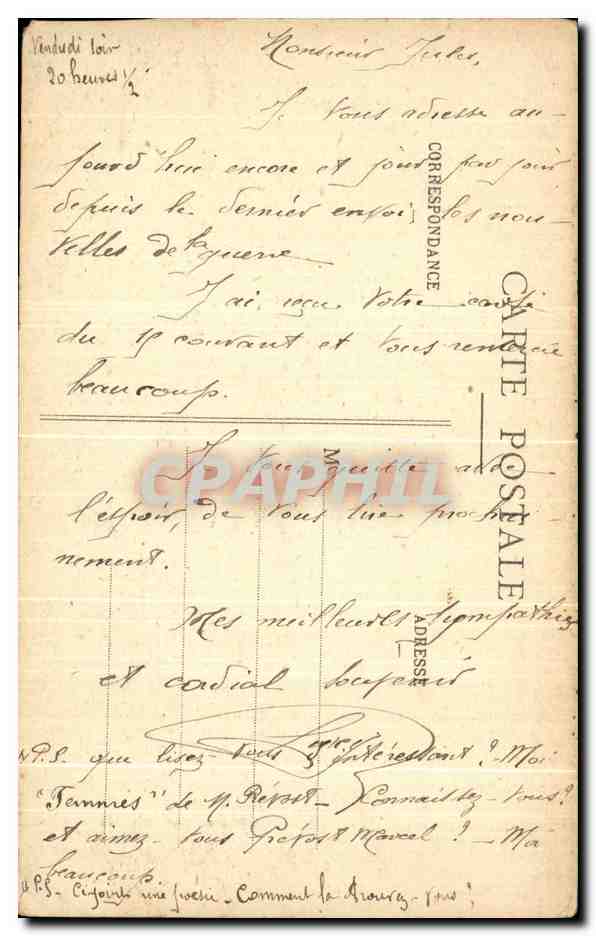 Vendredi soir
20 heures 1/2
Monsieur Jules,
Je vous adresse au-
jourd'hui encore et jour par jour
depuis le dernier envoi, les nou-
velles de la guerre
J'ai reçu votre carte
du 15 courant et vous remercie
beaucoup.
Je vous quitte avec
l'espoir, de vous lire prochai-
nement.
Mes meilleures sympathies
et cordial souvenir
P.S. que lisez-vous intéressant? - Moi
"Femmes" de M. Prévost - Connaissez-vous?
et aimez-vous Prévost Marcel? - Moi
beaucoup.
P.S - Ci-joint une poésie - Comment la trouvez-vous?
CORRESPONDANCE
CARTE POSTALE
M
ADRESSE
CPAPHIL